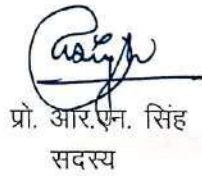 प्रो. आर.एन. सिंह
सदस्य